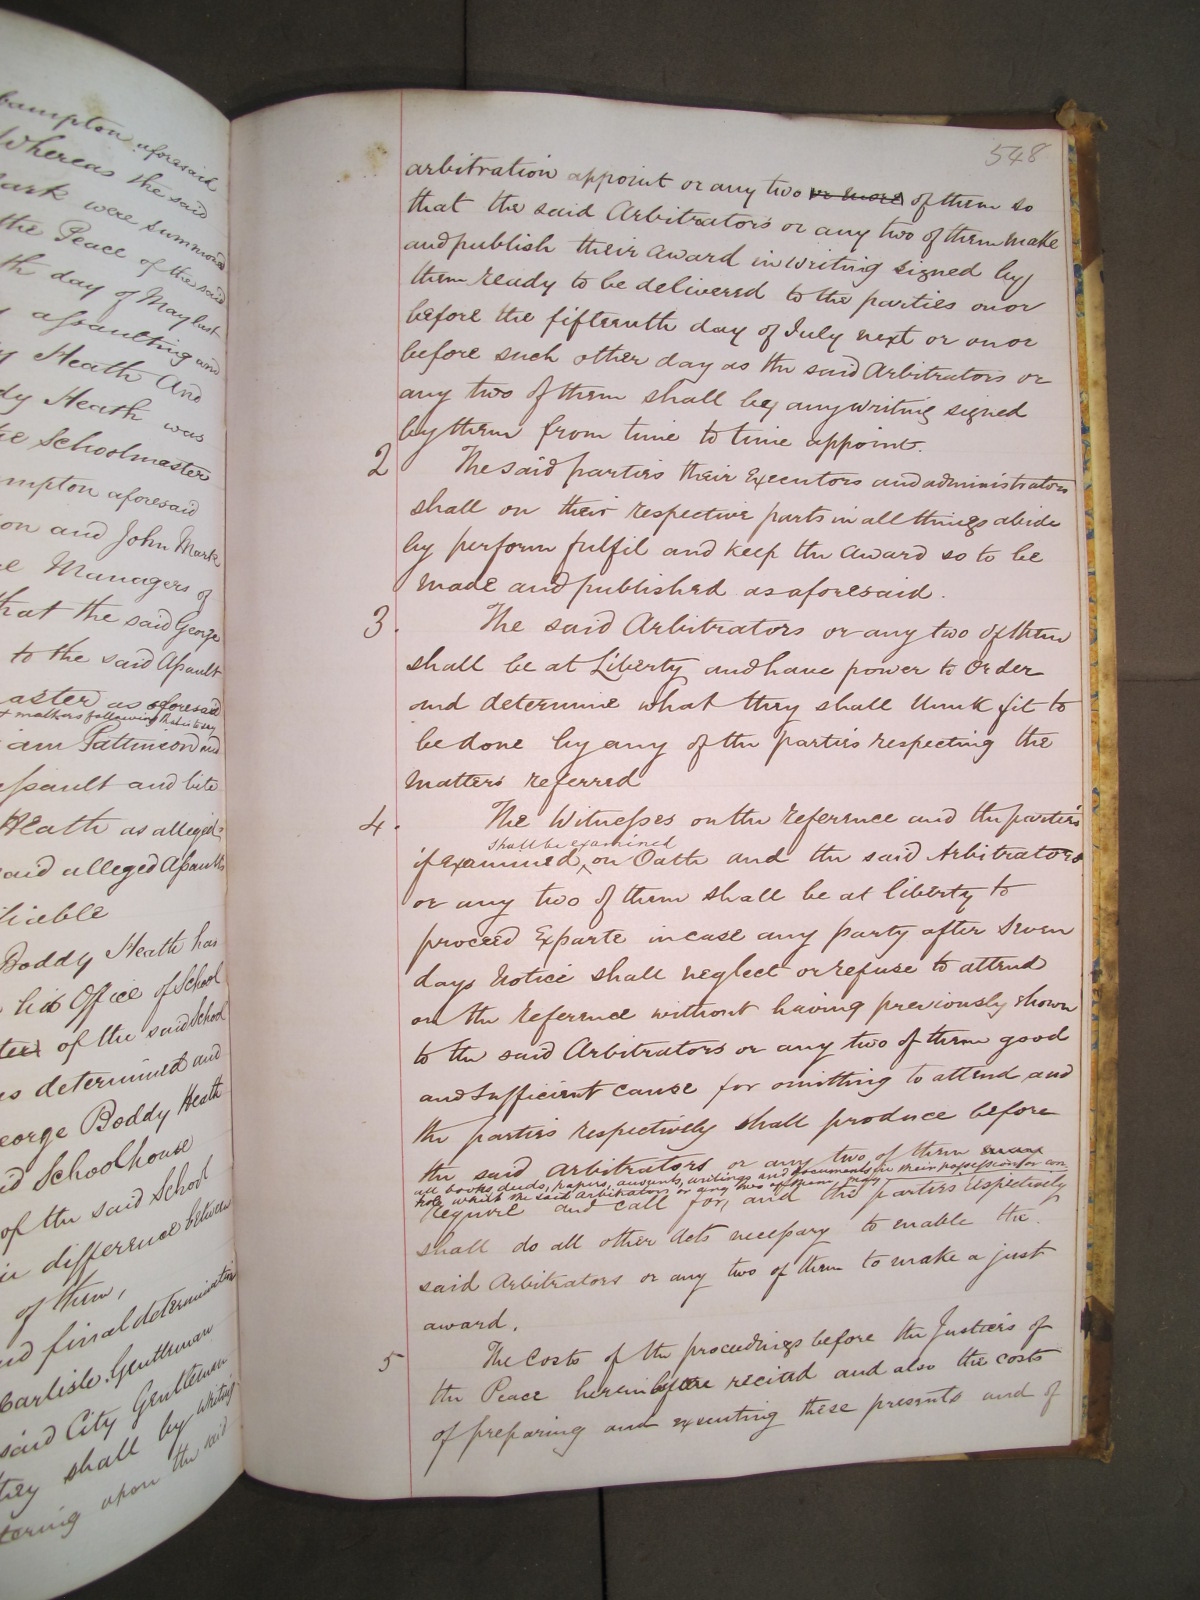 bampton aforesaid
Whereas the said
Mark were summoned
the Peace of the said
th day of May last
assaulting and
Heath And
dy Heath was
the Schoolmaster
mpton aforesaid
on and John Mark
Managers of
that the said George
to the said Assault
aster as aforesaid
matters following that is to say
iam Pattinson and
assault and bite
Heath as alleged
said alleged Assault
liable
Boddy Heath has
his Office of School
of the said School
is determined and
eorge Boddy Heath
id Schoolhouse
of the said School
difference between
of them,
nd final determination
Carlisle Gentleman
said City Gentleman
they shall by writing
tering upon the said
548
arbitration appoint or any two or more of them so
that the said Arbitrators or any two of them make
and publish their award in writing signed by
them ready to be delivered to the parties on or
before the fifteenth day of July next or on or
before such other day as the said Arbitrators or
any two of them shall by any writing signed
by them from time to time appoint.
2 The said parties their Executors and administrators
shall on their respective parts in all things abide
by perform fulfil and keep the award so to be
made and published as aforesaid.
3. The said Arbitrators or any two of them
shall be at Liberty and have power to Order
and determine what they shall think fit to
be done by any of the parties respecting the
matters referred
4. The Witnesses on the reference and the parties
shall be examined
if examined on Oath and the said Arbitrators
or any two of them shall be at liberty to
proceed Exparte in case any party after Seven
days Notice shall neglect or refuse to attend
on the reference without having previously shown
to the said Arbitrators or any two of them good
and sufficient cause for omitting to attend and
the parties respectively shall produce before
the said arbitrators or any two of them
all books, deeds, papers, accounts, writings and documents in their possession or con-
trol, which the said Arbitrators or any two of them, may
require and call for, and the parties respectively
shall do all other Acts necessary to enable the
said Arbitrators or any two of them to make a just
award.
5 The Costs of the proceedings before the Justices of
the Peace hereinbefore recited and also the costs
of preparing and executing these presents and of